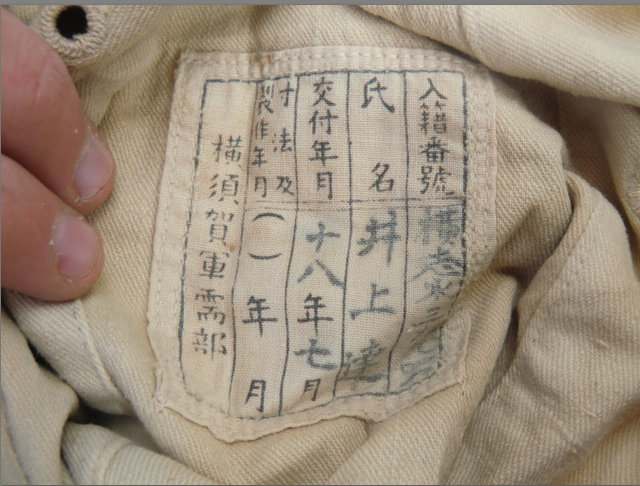 入籍番號 横志水三
氏名 井上
交付年月 十八年七月
寸法及製作年月 ( ) 年 月
横須賀軍需部